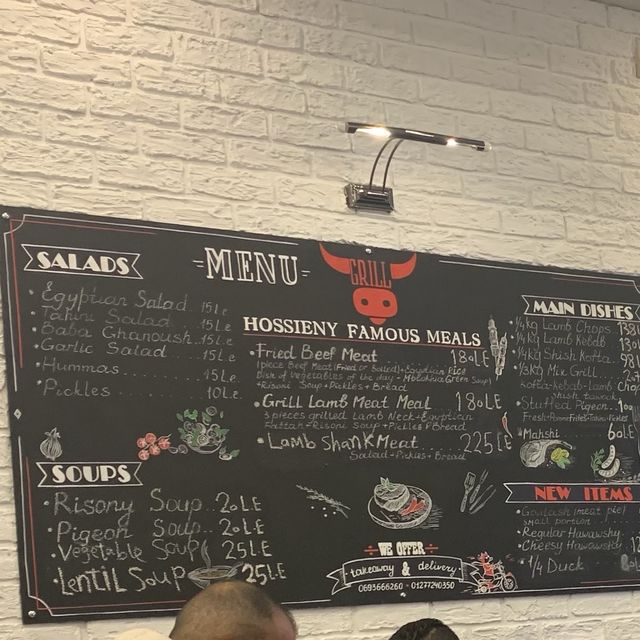 MENU
GRILL
SALADS
Egyptian Salad 15 L.e
Tahini Salad 15 L.e
Baba Ghanoush 15 L.e
Garlic Salad 15 L.e
Hummas 15 L.e
Pickles 10 L.e
SOUPS
Risony Soup 20 LE
Pigeon Soup 20 LE
Vegetable Soup 25 LE
Lentil Soup 25 LE
HOSSIENY FAMOUS MEALS
Fried Beef Meat 180 LE
1 piece Beef Meat (Fried or Boiled) + Egyptian Rice
Dish of Vegetables of the day + Molokhia (Green Soup)
+ Risoni Soup + Pickles + Bread
Grill Lamb Meat Meal 180 LE
3 pieces grilled Lamb Neck + Egyptian
Fattah + Risoni Soup + Pickles + Bread
Lamb Shank Meat 225 LE
Salad + Pickles + Bread
WE OFFER
takeaway & delivery
0693666260 - 01277240350
MAIN DISHES
1/4 kg Lamb Chops
1/4 kg Lamb Kebab
1/4 kg Shish Kofta
1/3 kg Mix Grill
kofta-kebab-lamb chop
Shish tawook
Stuffed Pigeon
Makshi 60 LE
NEW ITEMS
Goulash (meat pie)
small portion
Regular Hawawshy
Cheesy Hawawshy
1/4 Duck